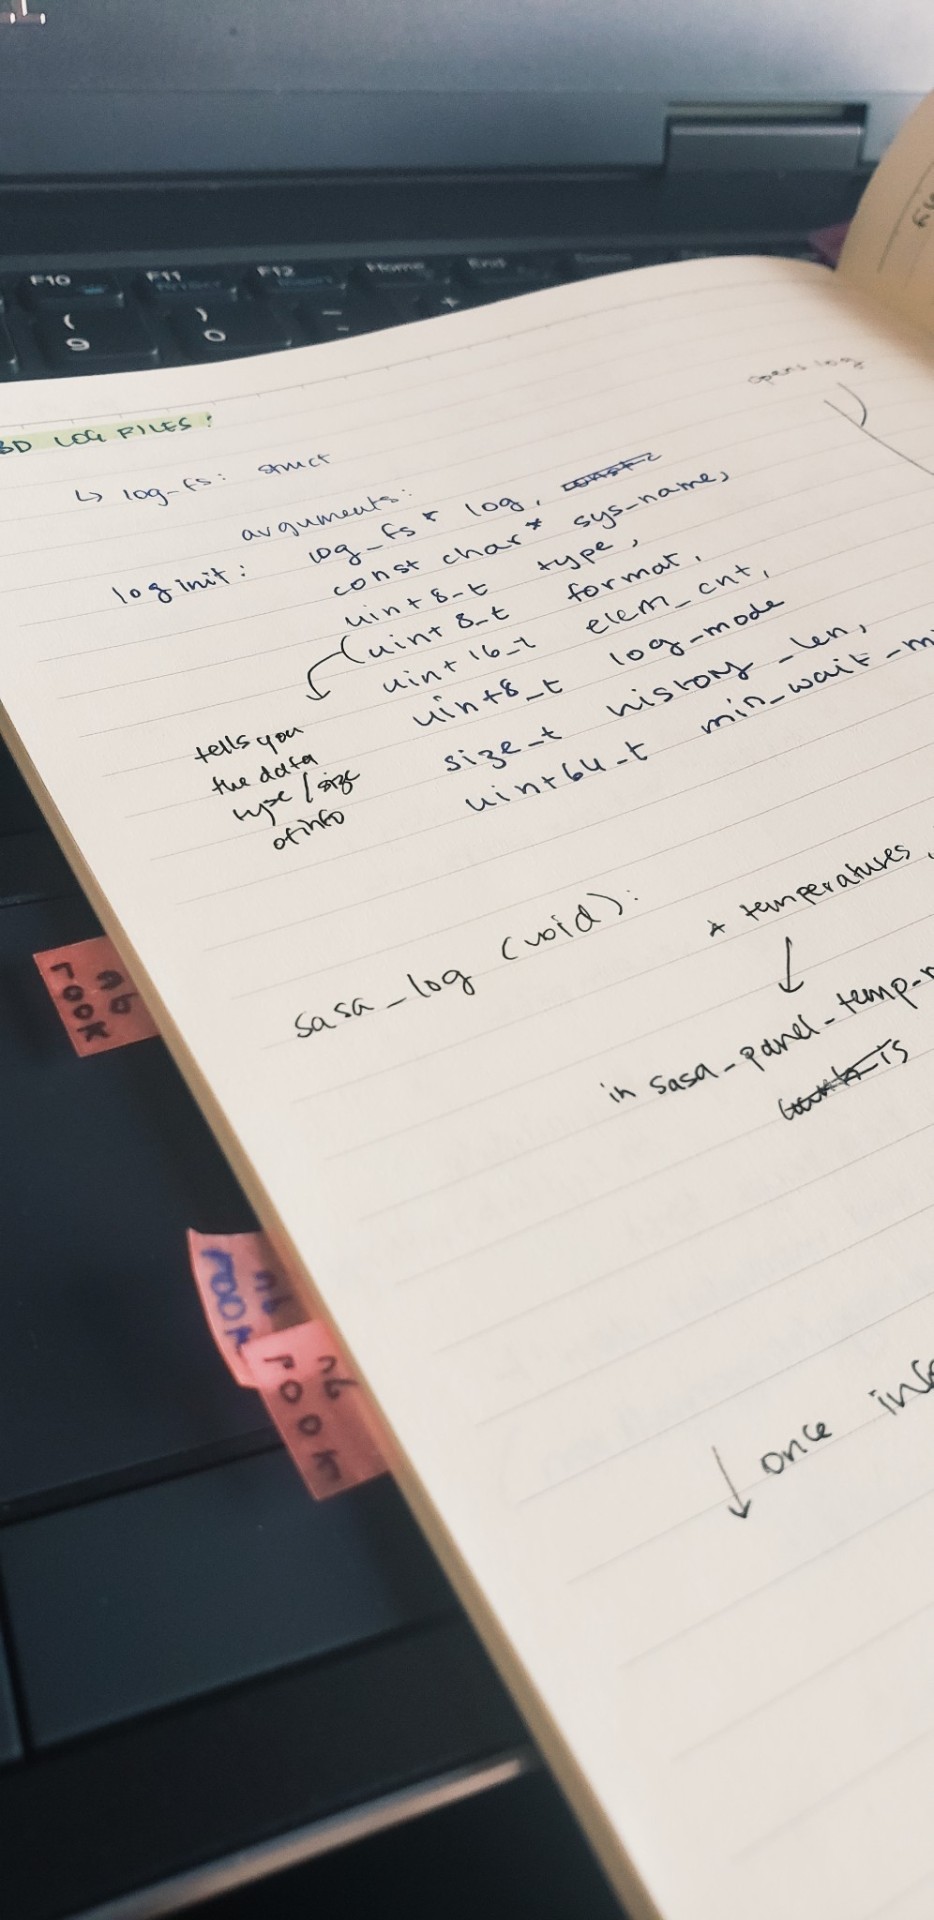 F10 F11 F12 Home End
( 9 ) 0 - +
opens log
BD LOG FILES:
↳ log_fs: struct
arguments:
log init: log_fs * log,
const char* sys_name,
uint8_t type,
(uint8_t format,
uint16_t elem_cnt,
uint8_t log_mode
size_t history_len,
uint64_t min_wait_m
tells you
the data
type / size
of info
sasa_log (void):
* temperatures,
↓
in sasa_panel_temp_
is
↓ once
nb
rook
nb
rook
nb
rook